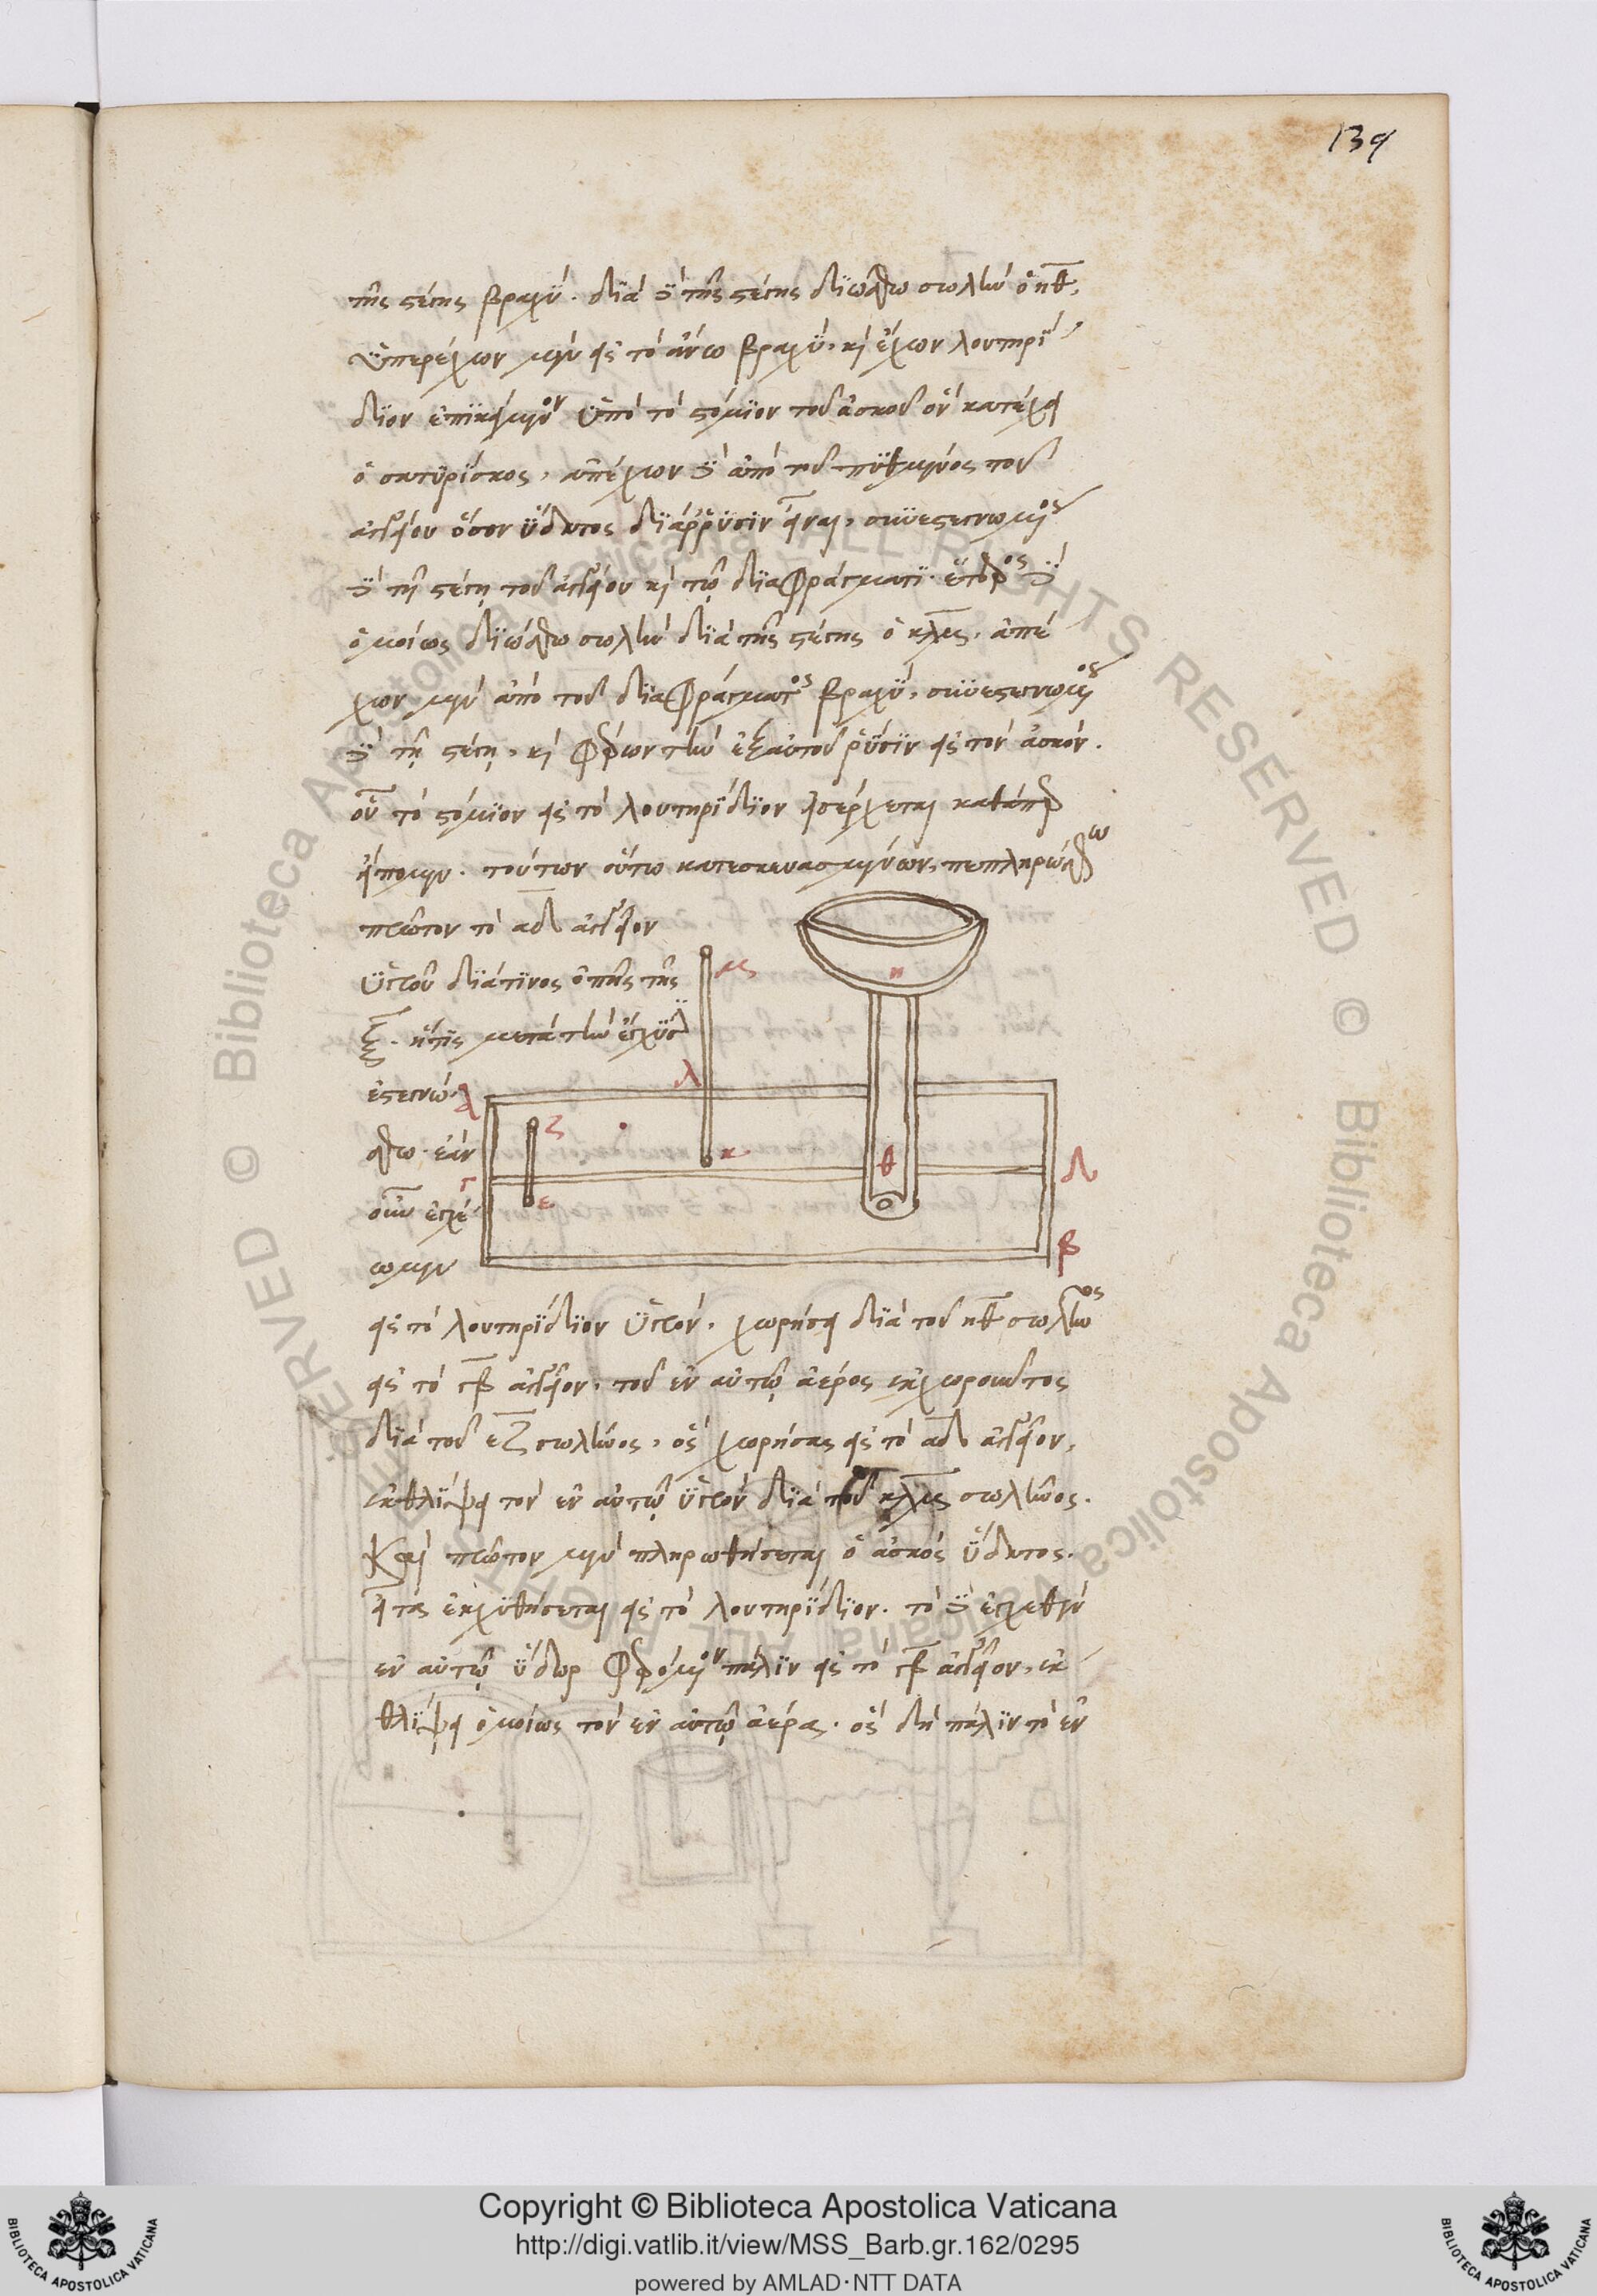 139
τῆς στέγης βραχύ. διὰ δὲ τῆς στέγης διώσθω σωλὴν ὁ ηθ,
ὑπερέχων μὲν εἰς τὸ ἄνω βραχύ, καὶ ἔχων λουτηρί
διον ἐπικείμενον ὑπὸ τὸ στόμιον τοῦ ἀσκοῦ ὃν κατέχει
ὁ σατυρίσκος, ἀπέχων δὲ ἀπὸ τοῦ πυθμένος τοῦ
ἀγγείου ὅσον ὕδατος διάρρυσιν εἶναι, συνεστεγνωμένος
δὲ τῇ στέγῃ τοῦ ἀγγείου καὶ τῷ διαφράγματι. ἕτερος δὲ
ὁμοίως διώσθω σωλὴν διὰ τῆς στέγης ὁ κλμ, ἀπέ
χων μὲν ἀπὸ τοῦ διαφράγματος βραχύ, συνεστεγνωμένος
δὲ τῇ στέγῃ, καὶ φέρων τὴν ἐξ αὐτοῦ ῥύσιν εἰς τὸν ἀσκόν.
οὗ τὸ στόμιον εἰς τὸ λουτηρίδιον εἰσέρχεται καθάπερ
εἴπομεν. τούτων οὕτω κατεσκευασμένων, πεπληρώσθω
πρῶτον τὸ αδ ἀγγεῖον
ὑγροῦ διά τινος ὀπῆς τῆς
ξ. ἥτις μετὰ τὴν ἔγχυσιν
ἐστεγνώ
σθω. ἐὰν
οὖν ἐγχέ
ωμεν
μ
η
λ
α
ζ
κ
θ
δ
γ
ε
β
εἰς τὸ λουτηρίδιον ὑγρὸν, χωρήσει διὰ τοῦ ηθ σωλῆνος
εἰς τὸ γβ ἀγγεῖον, τοῦ ἐν αὐτῷ ἀέρος ἐκχωροῦντος
διὰ τοῦ εζ σωλῆνος, ὃς χωρήσας εἰς τὸ αδ ἀγγεῖον,
ἐκθλίψει τὸν ἐν αὐτῷ ὑγρὸν διὰ τοῦ κλμ σωλῆνος.
Καὶ πρῶτον μὲν πληρωθήσεται ὁ ἀσκὸς ὕδατος.
εἶτα ἐκχυθήσεται εἰς τὸ λουτηρίδιον. τὸ δὲ ἐγχεθὲν
ἐν αὐτῷ ὕδωρ φερόμενον πάλιν εἰς τὸ γβ ἀγγεῖον, ἐκ
θλίψει ὁμοίως τὸν ἐν αὐτῷ ἀέρα. ὃς δὴ πάλιν τὸ ἐν
© Biblioteca Apostolica Vaticana ALL RIGHTS RESERVED
Copyright © Biblioteca Apostolica Vaticana
http://digi.vatlib.it/view/MSS_Barb.gr.162/0295
powered by AMLAD·NTT DATA
BIBLIOTECA APOSTOLICA VATICANA
BIBLIOTECA APOSTOLICA VATICANA